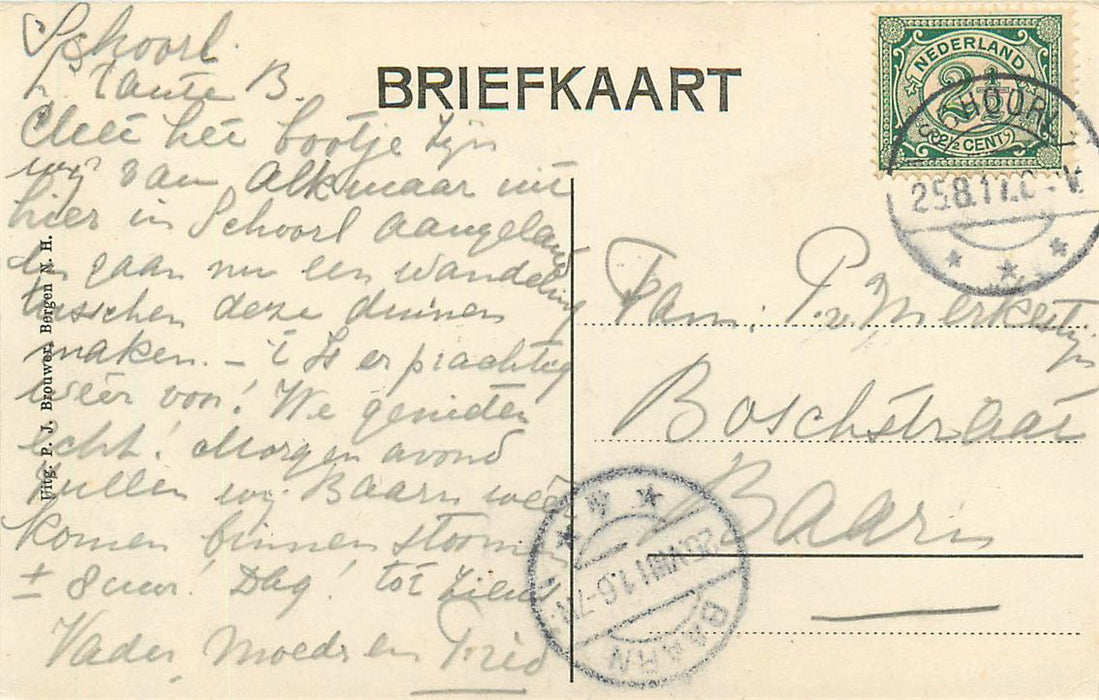 Schoorl.
L. Tante B.
Met het bootje zijn
wij van Alkmaar uit
hier in Schoorl aangeland
En gaan nu een wandeling
tusschen deze duinen
maken. – 't Is er prachtig
weêr voor! We genieten
echt! Morgen avond
zullen wij Baarn weêr
komen binnen stoomen
± 8 uur! Dag! tot ziens
Vader Moeder en Fried
Uitg. P. J. Brouwer, Bergen N. H.
BRIEFKAART
NEDERLAND
2½
2½ CENT
SCHOORL
25.8.11
Fam: P. v. Merkestijn
Boschstraat
Baarn
BAARN